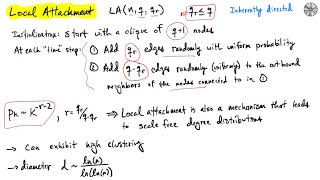 Local Attachment LA(n, q, qr) qr ≤ q Inherently directed
Initialization: Start with a clique of q+1 nodes
At each "time" step: ① Add qr edges randomly with uniform probability
② Add q-qr edges randomly (uniformly) to the outbound
neighbors of the nodes connected to in ①
Pk ~ K^-r-2, r = q/q-qr ⇒ Local attachment is also a mechanism that leads
to scale free degree distributions
→ Can exhibit high clustering
→ diameter d ~ ln(n)/ln(ln(n))